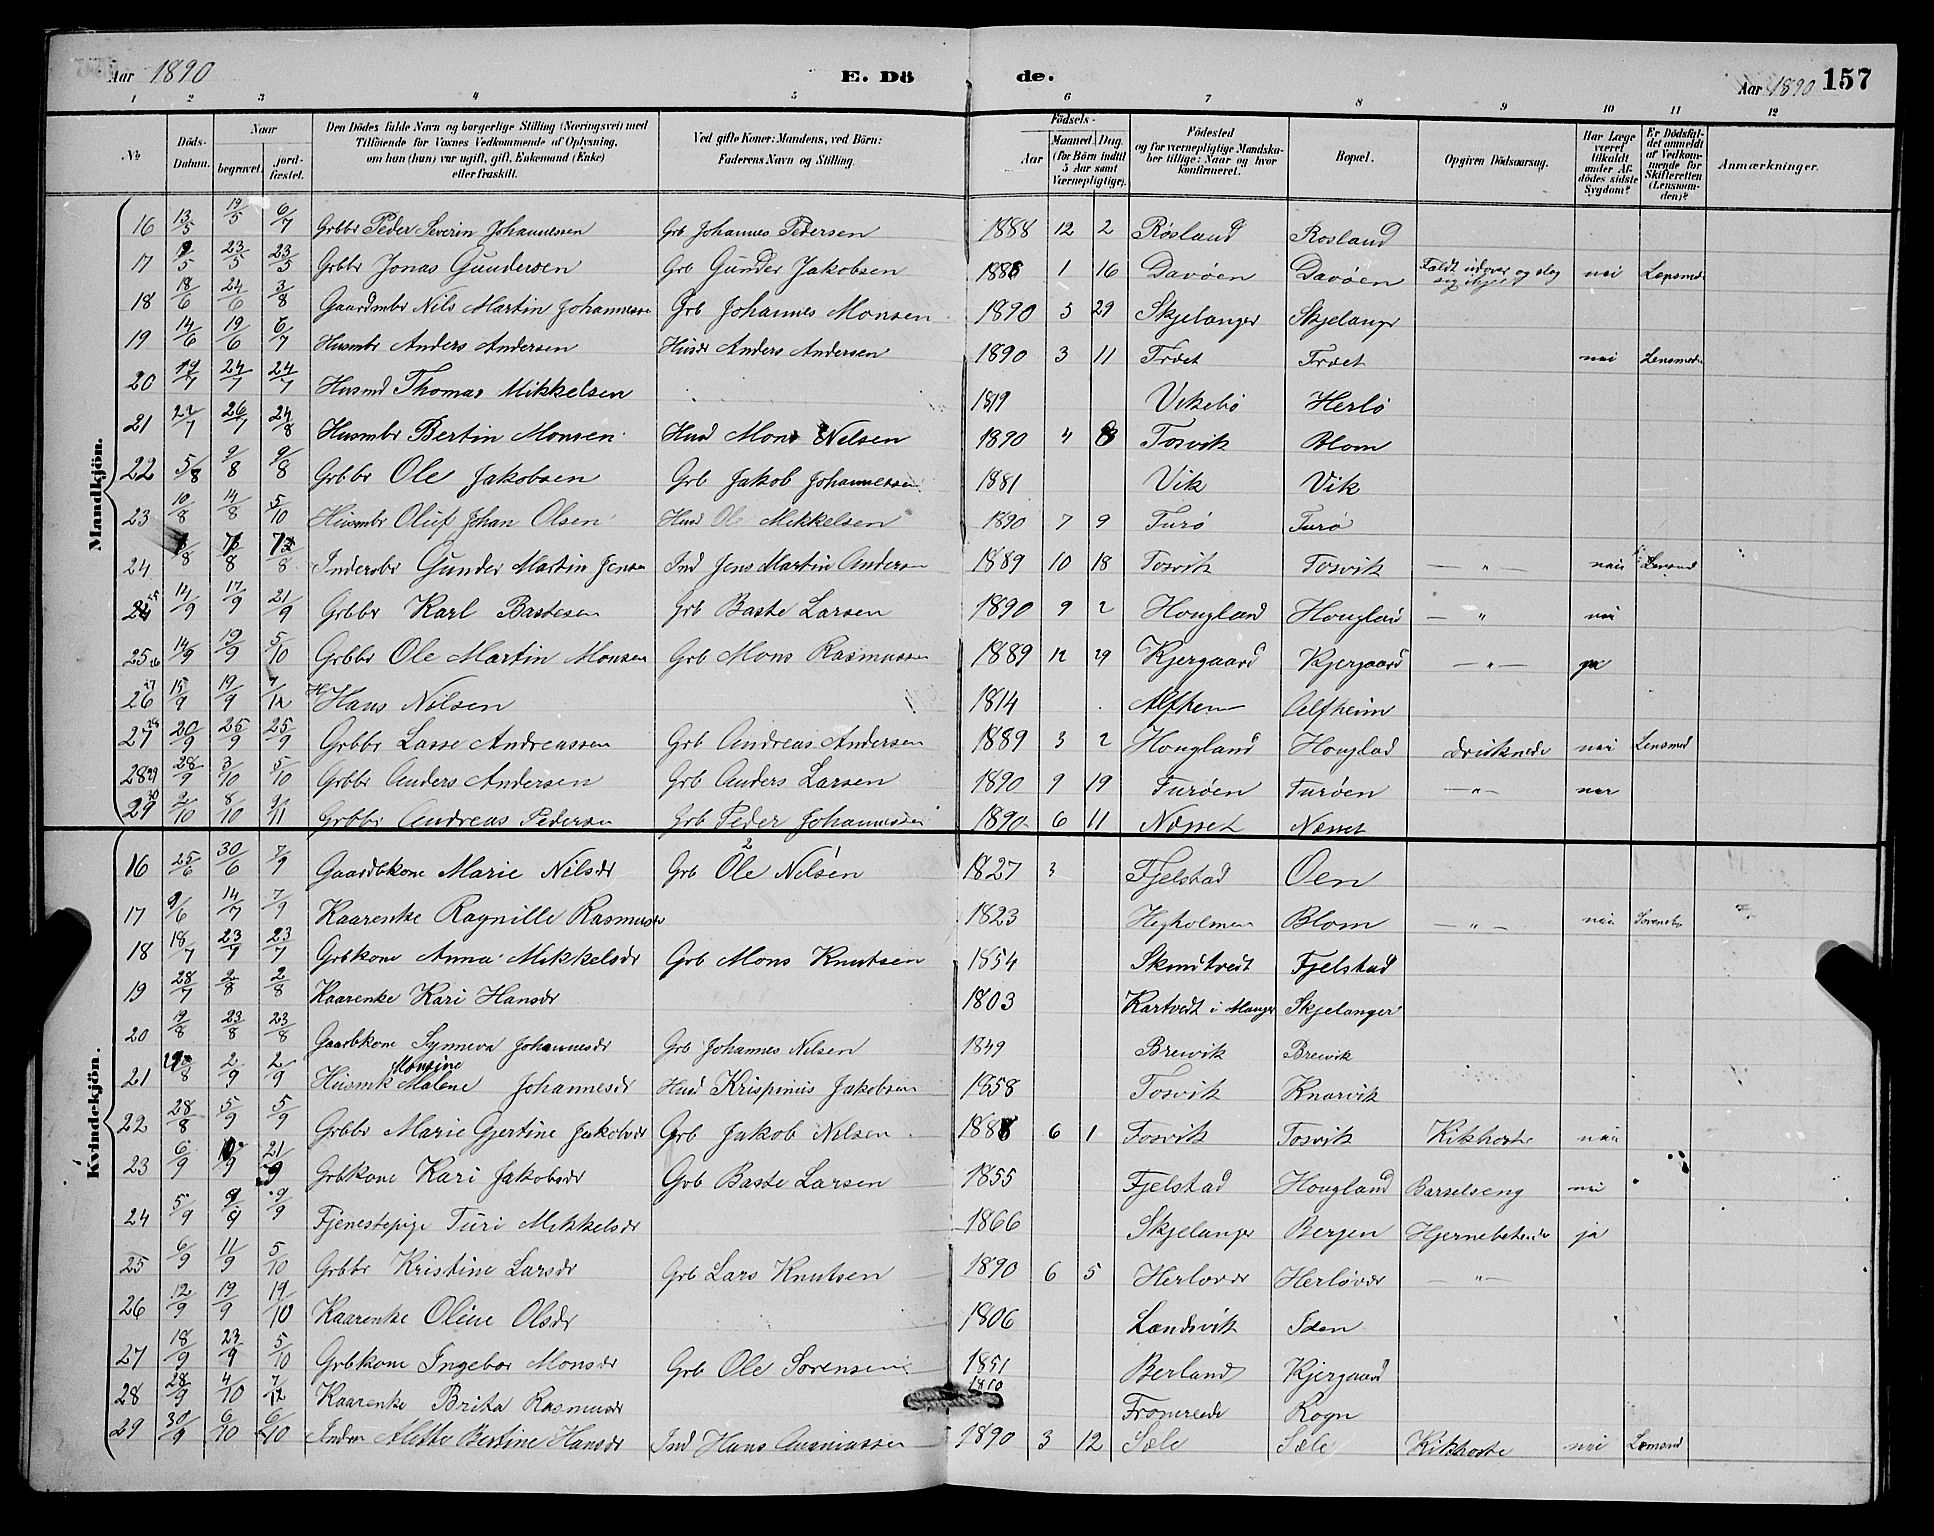 Aar 1890 E. Dö de. Aar 1890 157
1 2 3 4 5 6 7 8 9 10 11 12
№ Döds-Datum. Naar begravet. jord-fæstet. Den Dödes fulde Navn og borgerlige Stilling (Næringsvei) med Tilföiende for Voxnes Vedkommende af Oplysning, om han (hun) var ugift, gift, Enkemand (Enke) eller fraskilt. Ved gifte Koner: Mandens, ved Börn: Faderens Navn og Stilling. Födsels- Aar Maaned Dag (for Börn indtil 5 Aar samt Værnepligtige). Födested og for værnepligtige Mandska-ber tillige: Naar og hvor konfirmeret. Bopæl. Opgiven Dödsaarsag. Har Læge været tilkaldt under Af-dödes sidste Sygdom? Er Dödsfal-det anmeldt af Vedkom-mende for Skifteretten (Lensman-den)? Anmærkninger.
Mandkjön.
16 13/5 19/5 6/7 Grbbr Peder Severin Johannessen Grb Johannes Pedersen 1888 12 2 Rosland Rosland
17 9/5 23/5 23/5 Grbbr Jonas Gundersen Grb Gunder Jakobsen 1 16 Davøen Davøen Faldt udover og slog sig ihjel nei Lensmd
18 18/6 24/6 3/8 Gaardmbr Nils Martin Johannessen Grb Johannes Monsen 1890 5 29 Skjelanger Skjelanger
19 14/6 19/6 6/7 Husmbr Anders Andersen Husm Anders Andersen 1890 3 11 Træet Træet nei Lensmd
20 19/7 24/7 24/7 Husmd Thomas Mikkelsen 1819 Vikebø Herlø
21 22/7 26/7 24/8 Husmbr Bertin Monsen Husd Mons Nilsen 1890 4 8 Tosvik Blom
22 5/8 9/8 9/8 Grbbr Ole Jakobsen Grb Jakob Johannessen 1881 Vik Vik
23 10/8 14/8 5/10 Husmbr Oluf Johan Olsen Husd Ole Mikkelsen 1890 7 9 Turø Turø
24 Indersbr Gunder Martin Jensen Ind Jens Martin Andersen 1889 10 18 Tosvik Tosvik — " — nei Lensmd
25 14/9 17/9 21/9 Grbbr Karl Bastesen Grb Baste Larsen 1890 9 2 Hougland Hougland — " nei
25 26 14/9 19/9 5/10 Grbbr Ole Martin Monsen Grb Mons Rasmussen 1889 12 29 Kjergaard Kjergaard — " — ja
26 27 15/9 19/9 7/12 Hans Nilsen 1814 Alfhem Alfheim
27 28 20/9 25/9 25/9 Grbbr Lasse Andreassen Grb Andreas Andersen 1889 3 2 Hougland Houglad Druknede nei Lensmd
28 29 28/9 3/10 5/10 Grbbr Anders Andersen Grb Anders Larsen 1890 9 19 Turøen Turøen — " — nei
29 30 2/10 8/10 9/11 Grbbr Andreas Pedersen Grb Peder Johannessen 1890 6 11 Næsset Næsset
Kvindekjön.
16 25/6 30/6 7/9 Gaardbkone Marie Nilsdr Grb Ole Nilsen 1827 3 Fjelstad Oen
17 9/6 14/7 7/9 Kaarenke Ragnille Rasmusdr 1823 Hejholmen Blom — " — nei
18 18/7 23/9 23/7 Grbkone Anna Mikkelsdr Grb Mons Knutsen 1854 Skondtvedt Fjelstad
19 28/7 2/8 2/8 Kaarenke Kari Hansdr 1803 Kartvedt i Manger Skjelanger
20 19/8 23/8 23/8 Gaardkone Synneva Johannesdr Grb Johannes Nilsen 1849 Breivik Breivik
21 2/9 2/9 Husmk Malene Monsine Johannesdr Husd Krispinus Jakobsen 1858 Tosvik Knarvik
22 28/8 5/9 5/9 Grbbr Marie Gjertine Jakobsdr Grb Jakob Nilsen 1888 6 1 Tosvik Tosvik Kikhoste nei
23 6/9 21/9 Grbkone Kari Jakobsdr Grb Baste Larsen 1855 Fjelstad Hougland Barselseng nei "
24 5/9 9/9 9/9 Tjenestepige Turi Mikkelsdr 1866 Skjelanger Bergen Hjernebetænd ja
25 6/9 11/9 5/10 Grbbr Kristine Larsdr Grb Lars Knutsen 1890 6 5 Herløvær Herløvær — " —
26 12/9 19/9 19/10 Kaarenke Oline Olsdr 1806 Landsvik Iden
27 18/9 23/9 5/10 Grbkone Ingebor Monsdr Grb Ole Sørensen 1851 Berland Kjergaard
28 28/9 4/10 7/12 Kaarenke Brita Rasmusdr 1810 Fromreede Rogn
29 30/9 6/10 6/10 Inder Alette Bertine Hansdr Ind Hans Ananiassen 1890 3 12 Sæle Sæle Kikhoste nei Lensmd